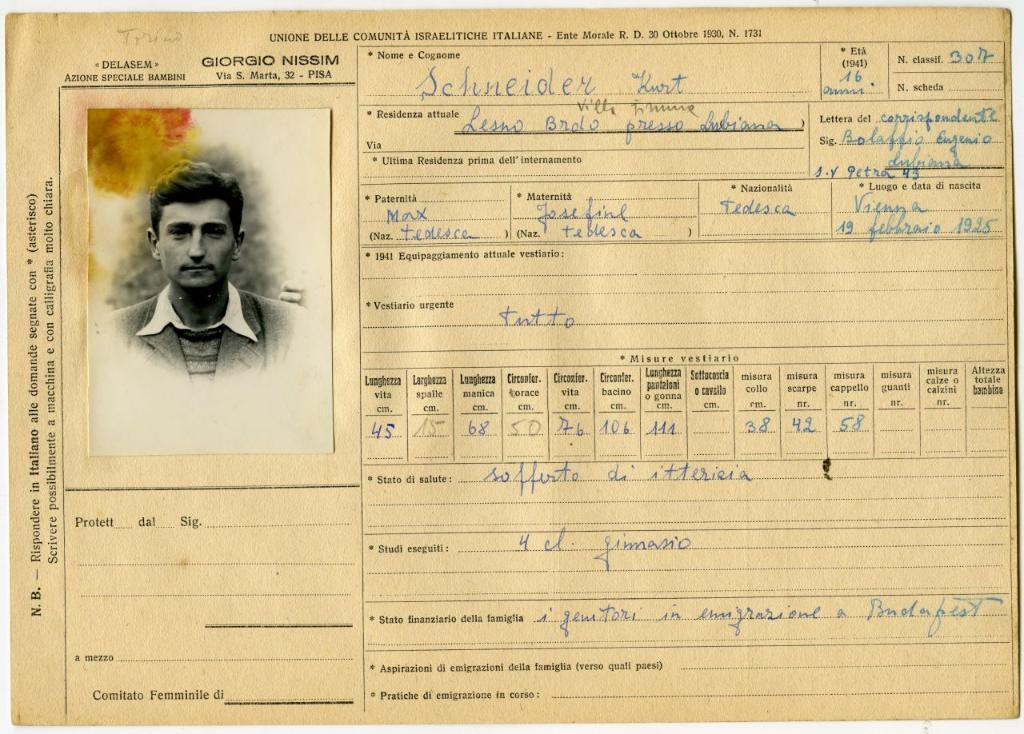 Torino
UNIONE DELLE COMUNITÀ ISRAELITICHE ITALIANE - Ente Morale R. D. 30 Ottobre 1930, N. 1731
« DELASEM »
AZIONE SPECIALE BAMBINI
GIORGIO NISSIM
Via S. Marta, 32 - PISA
* Nome e Cognome
Schneider Kurt
* Età
(1941)
16
anni
N. classif. 307
N. scheda
* Residenza attuale
Villa
Lesno Brdo presso Lubiana )
Via
* Ultima Residenza prima dell'internamento
Lettera del corrispondente
Sig. Bolaffio Eugenio
Lubiana
s.v Petra 43
* Paternità
Max
(Naz. tedesca )
* Maternità
Josefine
(Naz. tedesca )
* Nazionalità
tedesca
* Luogo e data di nascita
Vienna
19 febbraio 1925
* 1941 Equipaggiamento attuale vestiario:
* Vestiario urgente
tutto
* Misure vestiario
Lunghezza vita cm. 45
Larghezza spalle cm. 15
Lunghezza manica cm. 68
Circonfer. torace cm. 50
Circonfer. vita cm. 76
Circonfer. bacino cm. 106
Lunghezza pantaloni o gonna cm. 111
Sottocoscia o cavallo cm.
misura collo cm. 38
misura scarpe nr. 42
misura cappello nr. 58
misura guanti nr.
misura calze o calzini nr.
Altezza totale bambino
* Stato di salute: sofferto di itterizia
* Studi eseguiti: 4 cl. ginnasio
* Stato finanziario della famiglia i genitori in emigrazione a Budapest
* Aspirazioni di emigrazioni della famiglia (verso quali paesi)
* Pratiche di emigrazione in corso:
Protett dal Sig.
a mezzo
Comitato Femminile di
N. B. — Rispondere in Italiano alle domande segnate con * (asterisco)
Scrivere possibilmente a macchina e con calligrafia molto chiara.